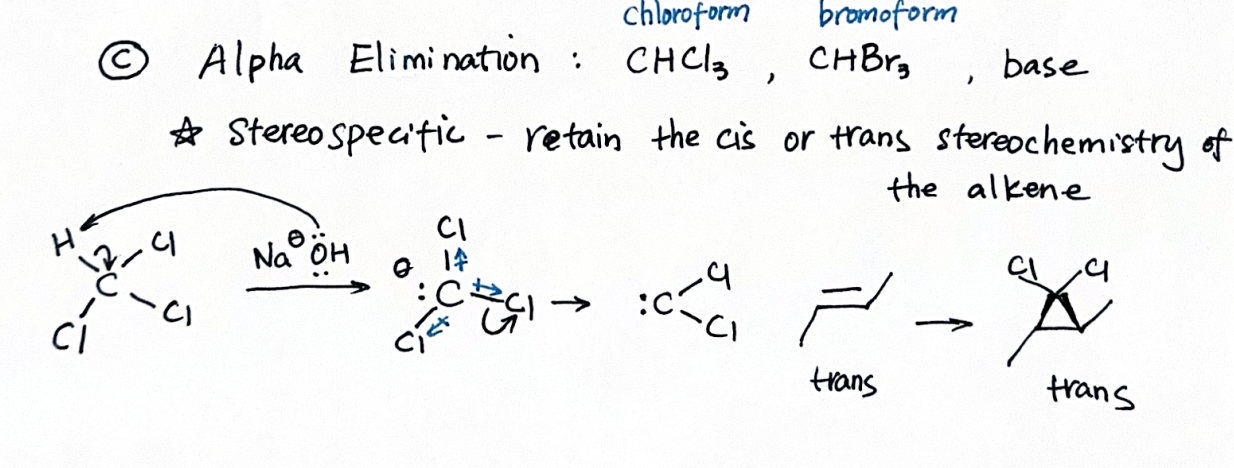 chloroform bromoform
© Alpha Elimination : CHCl₃ , CHBr₃ , base
☆ Stereospecific - retain the cis or trans stereochemistry of
the alkene
H Cl C Cl Cl
Na ⊖ :ÖH
⊖ Cl :C Cl Cl
:C Cl Cl
trans
Cl Cl
trans